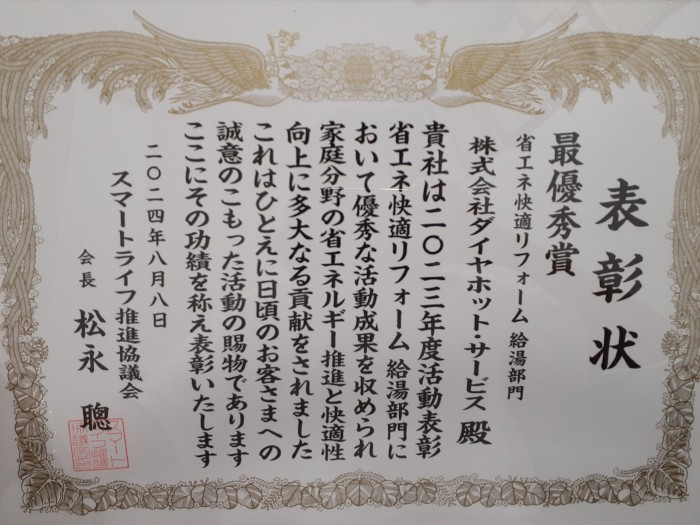 表彰状
最優秀賞
省エネ快適リフォーム 給湯部門
株式会社ダイヤホット・サービス 殿
貴社は二〇二三年度活動表彰
省エネ快適リフォーム 給湯部門に
おいて優秀な活動成果を収められ
家庭分野の省エネルギー推進と快適性
向上に多大なる貢献をされました
これはひとえに日頃のお客さまへの
誠意のこもった活動の賜物であります
ここにその功績を称え表彰いたします
二〇二四年八月八日
スマートライフ推進協議会
会長 松永 聰